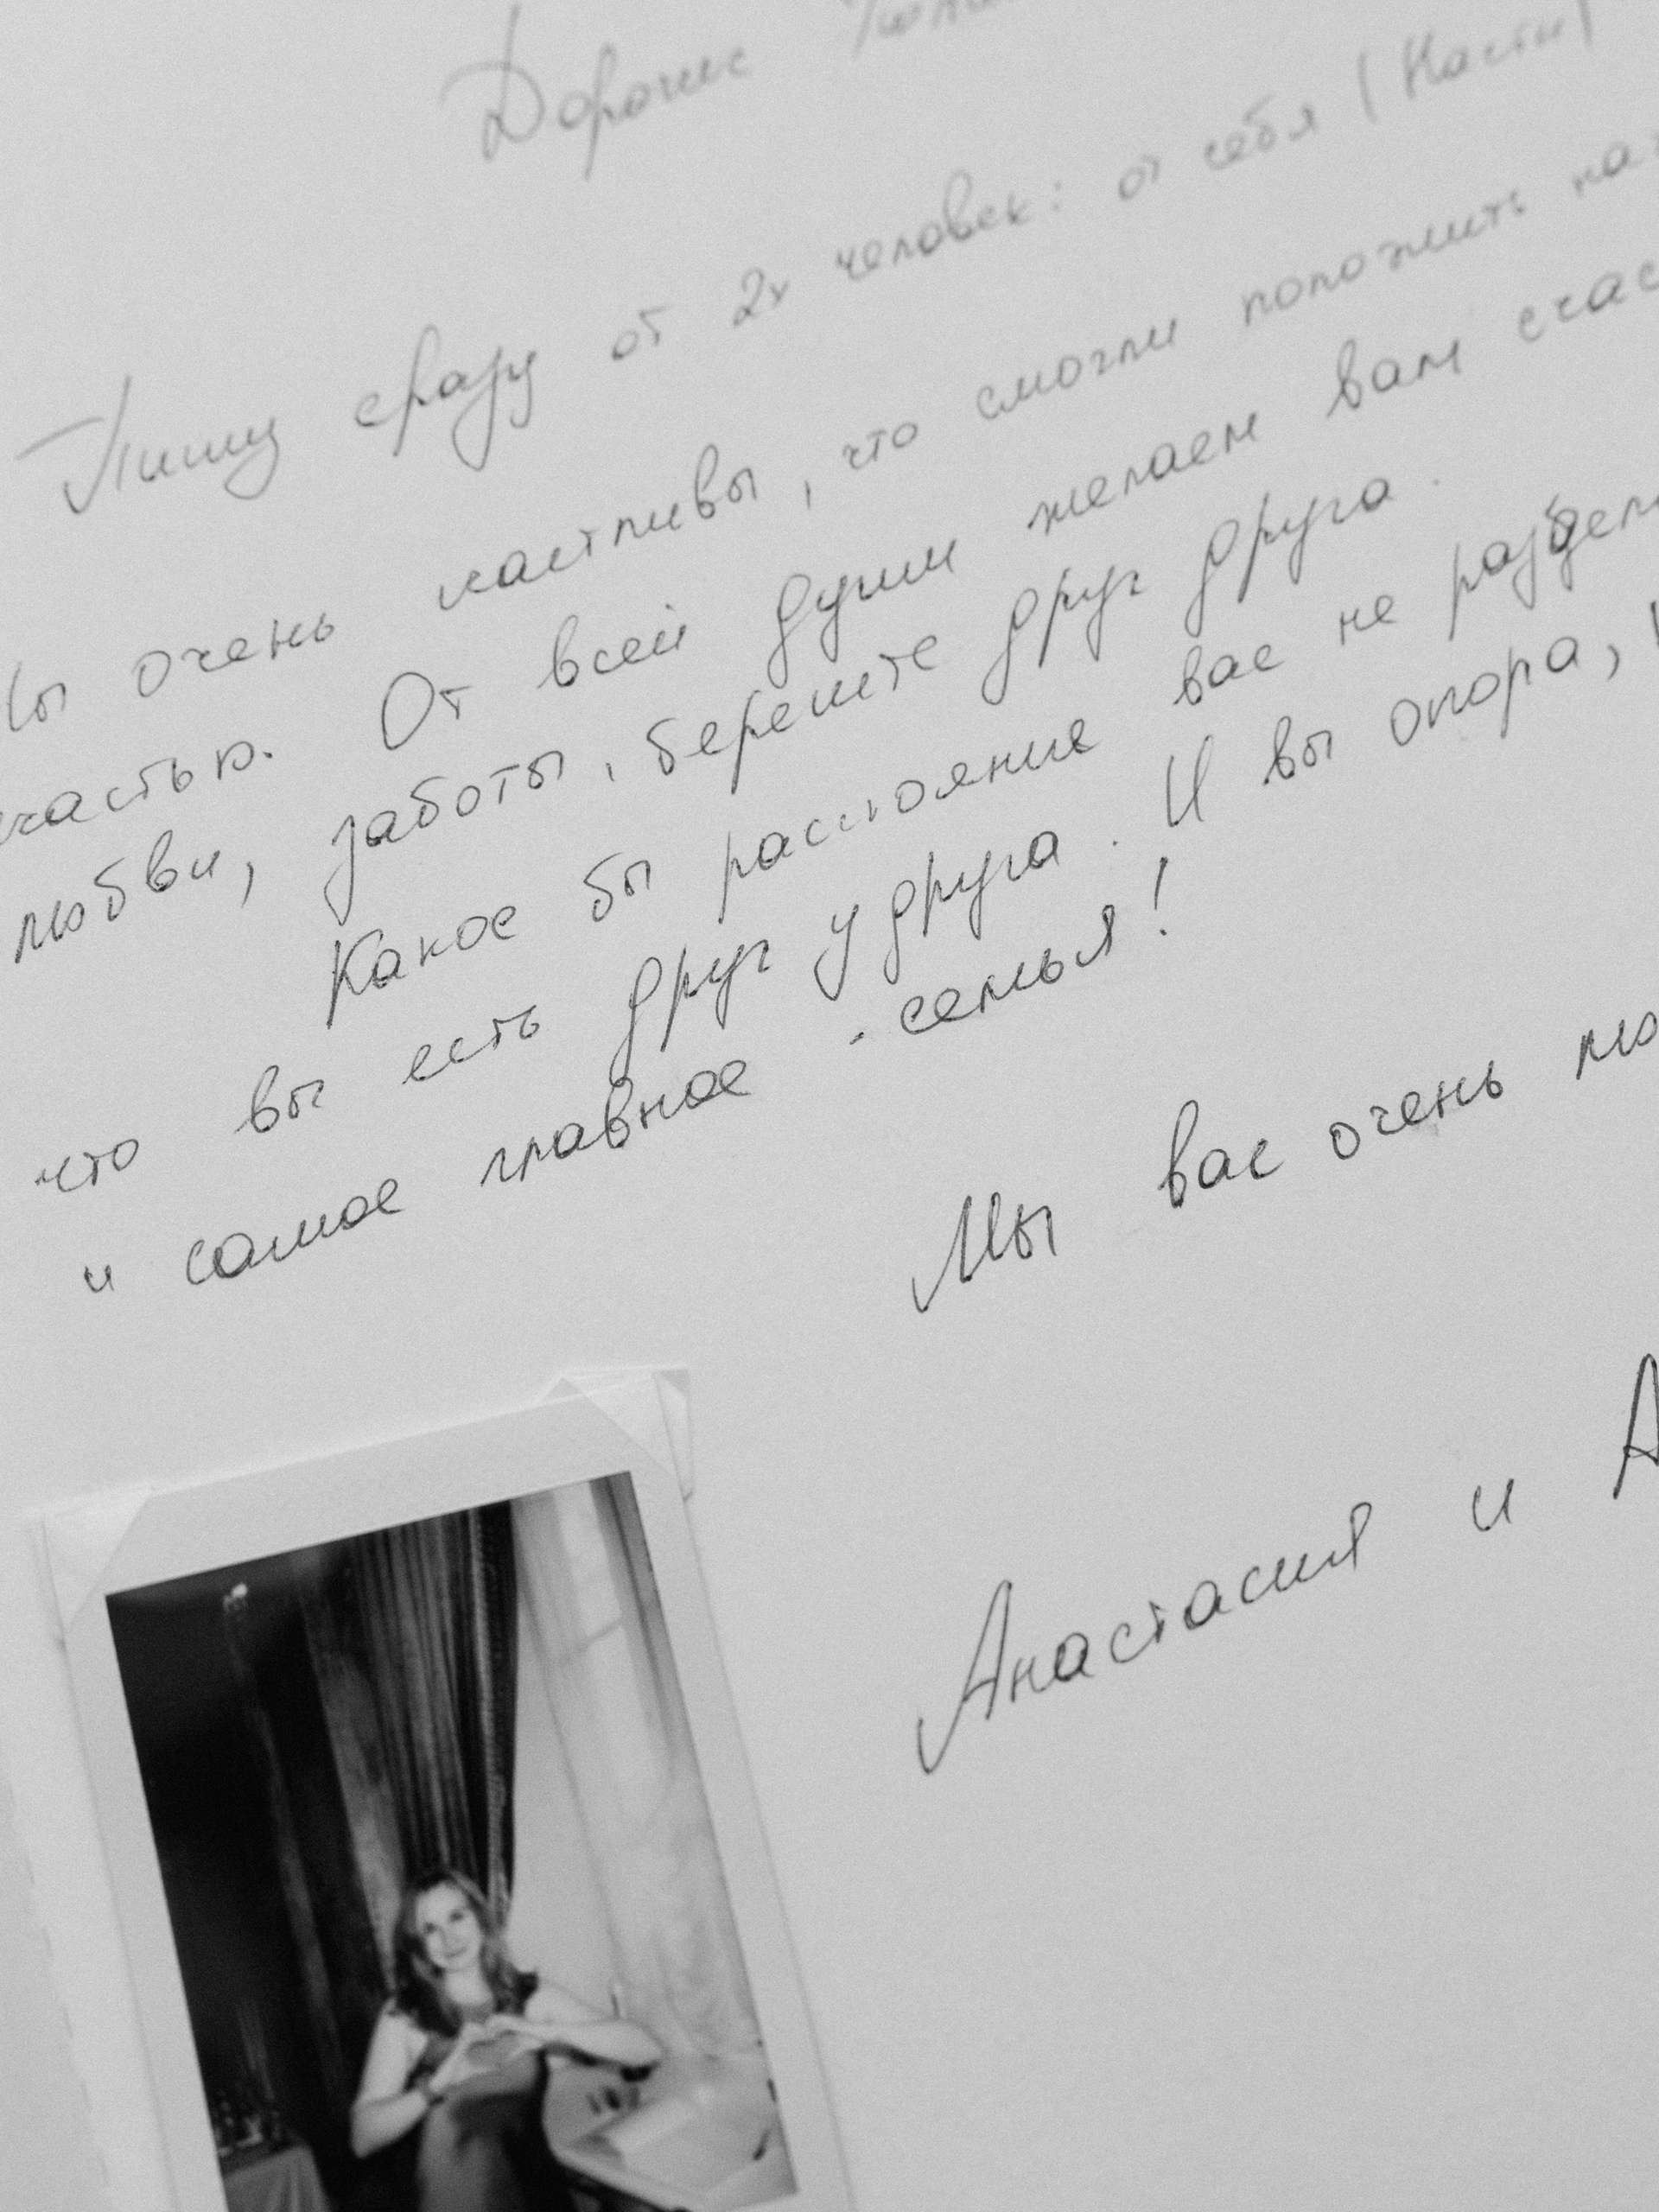 Дорогие
Пишу сразу от 2х человек: от себя (Насти)
Мы очень счастливы, что смогли положить нач
счастью. От всей души желаем вам счас
любви, заботы, берегите друг друга.
Какое бы расстояние вас не разде
что вы есть друг у друга. И вы опора,
и самое главное - семья!
Мы вас очень лю
Анастасия и А